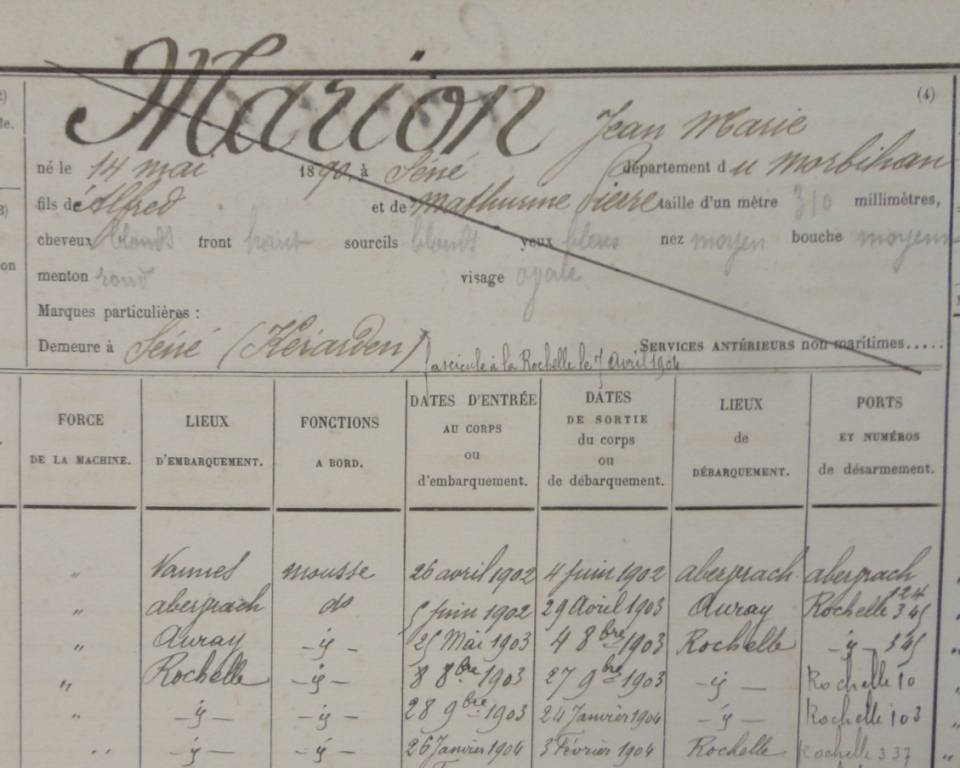 2)
le.
3)
on
(4)
Marion Jean Marie
né le 14 mai 1890, à Séné département du morbihan
fils de Alfred et de mathurine Pierre taille d'un mètre 310 millimètres,
cheveux blonds front haut sourcils blonds yeux bleus nez moyen bouche moyenne
menton rond visage ovale
Marques particulières :
Demeure à Séné (Kérarden) SERVICES ANTÉRIEURS non maritimes.....
fascicule à la Rochelle le 7 avril 1904
FORCE DE LA MACHINE. LIEUX D'EMBARQUEMENT. FONCTIONS A BORD. DATES D'ENTRÉE AU CORPS ou d'embarquement. DATES DE SORTIE du corps ou de débarquement. LIEUX de DÉBARQUEMENT. PORTS ET NUMÉROS de désarmement.
" Vannes mousse 26 avril 1902 4 Juin 1902 abergrach abergrach 124
" abergrach do 5 Juin 1902 29 Avril 1903 Auray Rochelle 345
" Auray - ij - 25 Mai 1903 4 8bre 1903 Rochelle - ij - 345
" Rochelle - ij - 8 8bre 1903 27 9bre 1903 - ij - Rochelle 10
" - ij - - ij - 28 9bre 1903 24 Janvier 1904 - ij - Rochelle 103
" - ij - - ij - 26 Janvier 1904 3 Février 1904 Rochelle Rochelle 337